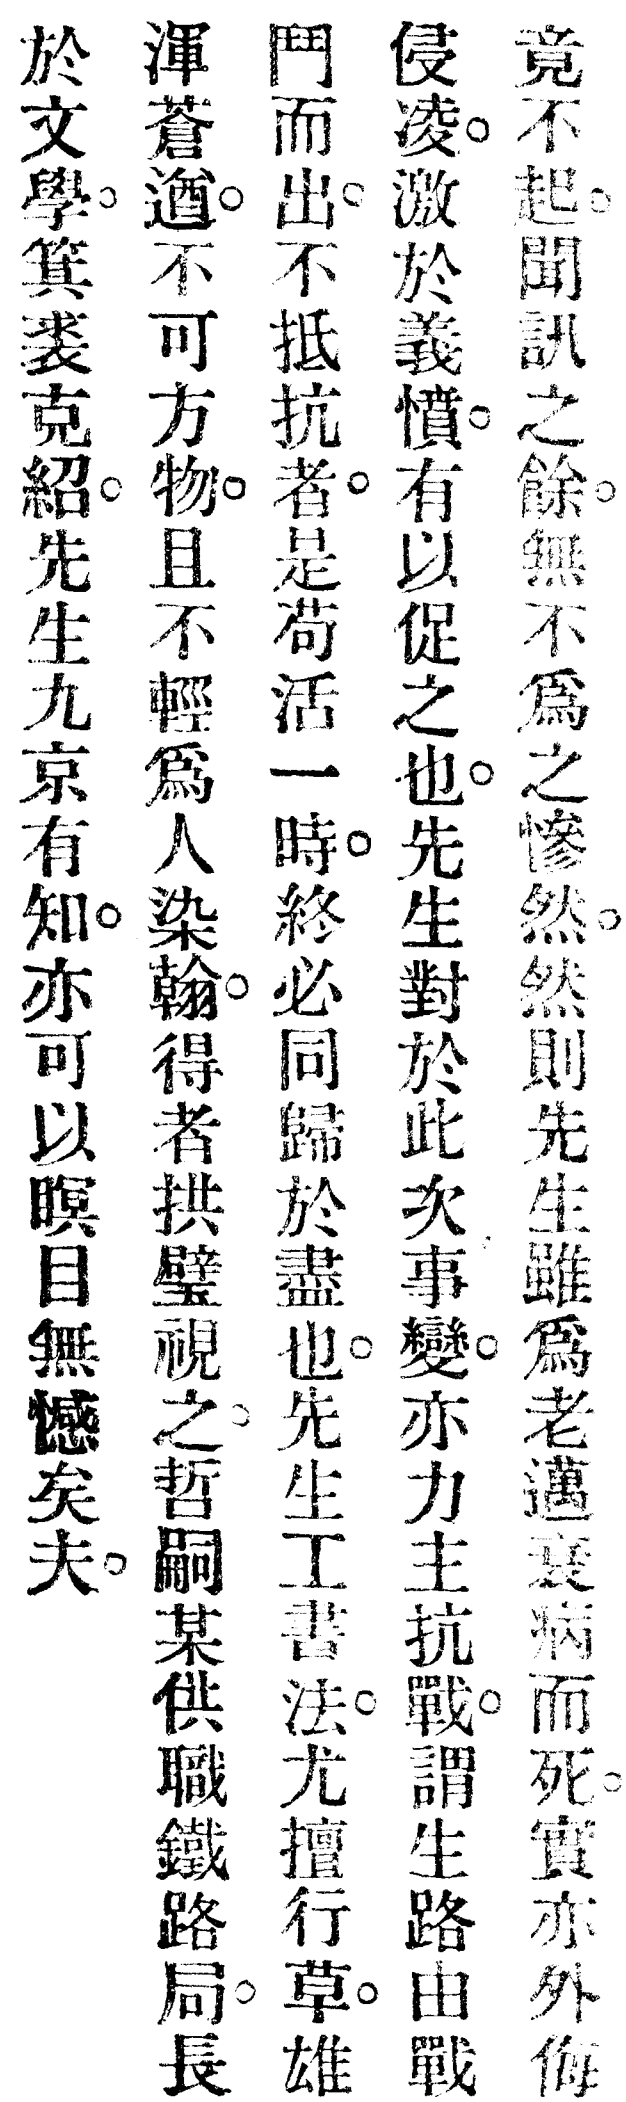 竟不起。聞訊之餘。無不爲之慘然。然則先生雖爲老邁衰病而死。實亦外侮
侵凌。激於義憤。有以促之也。先生對於此次事變。亦力主抗戰。謂生路由戰
鬥而出。不抵抗者。是苟活一時。終必同歸於盡也。先生工書法。尤擅行草。雄
渾蒼遒。不可方物。且不輕爲人染翰。得者拱璧視之。哲嗣某供職鐵路局。長
於文學。箕裘克紹。先生九京有知。亦可以瞑目無憾矣夫。